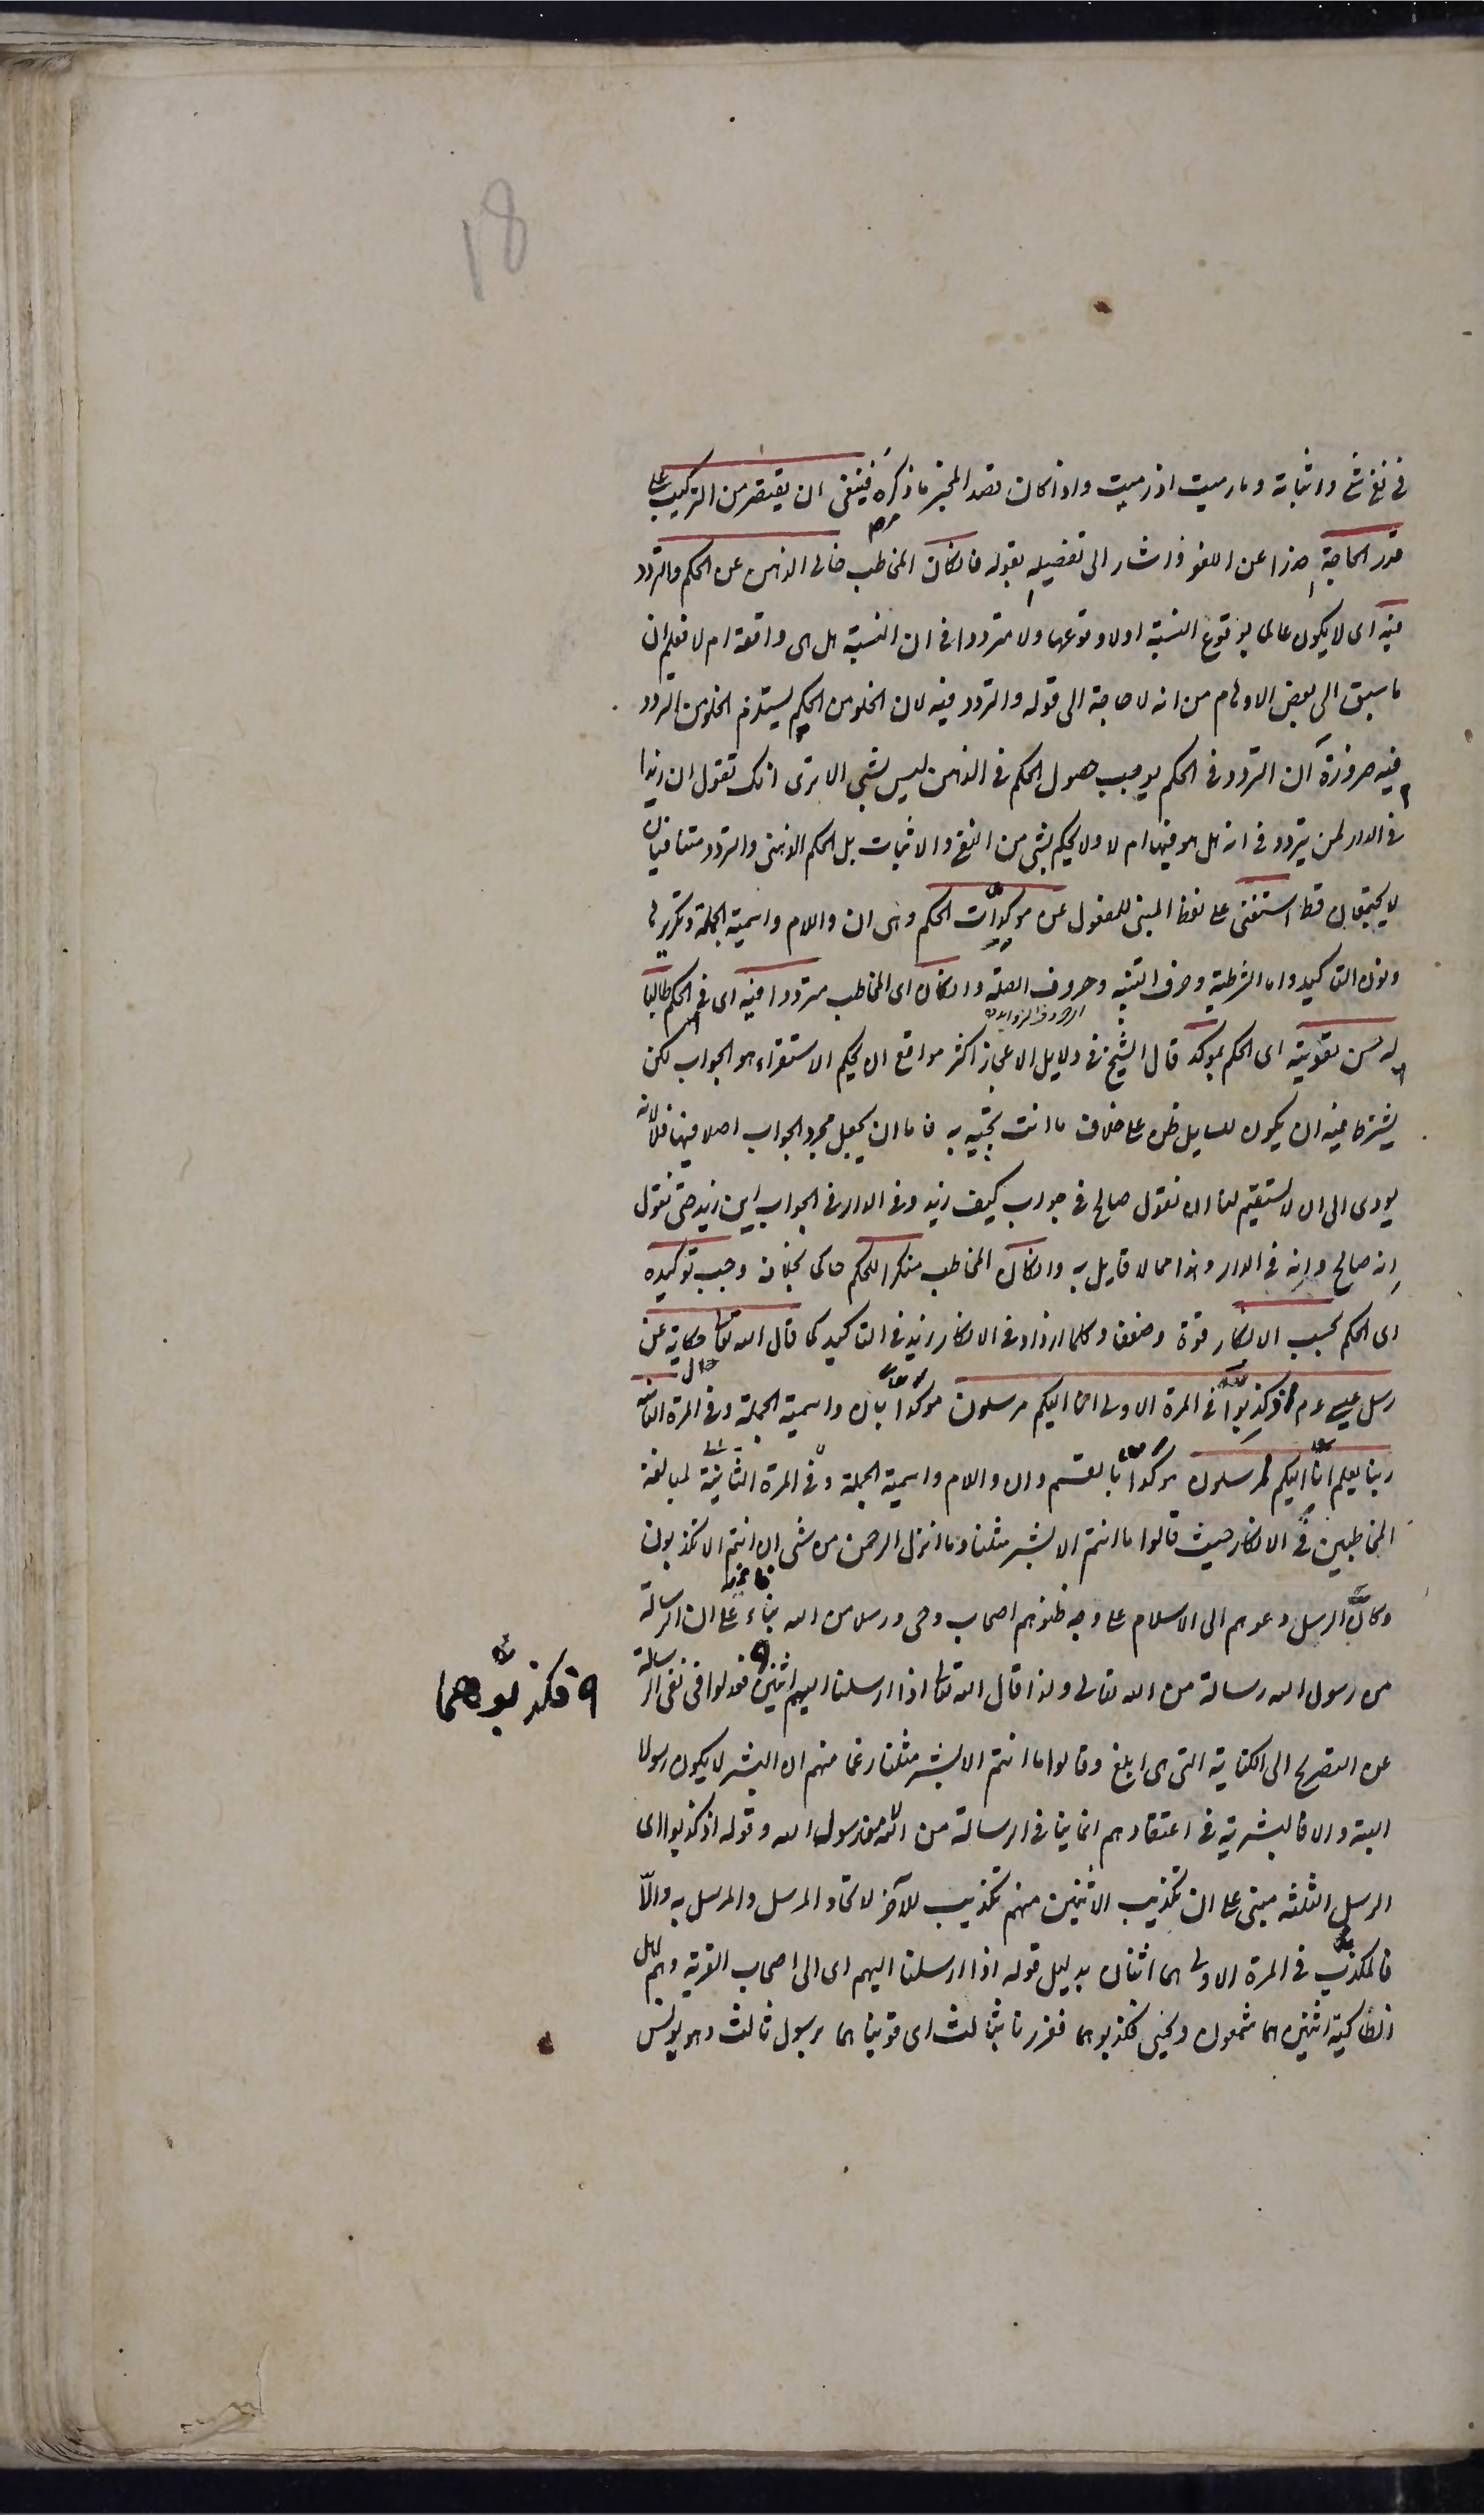 18
في نفي شئ واثباته وما رميت اذ رميت واذا كان قصد المخبر ما ذكره فينبغي ان يقتصر من التركيب على
قدر الحاجة حذرا عن اللغو واشار الى تفصيله بقوله فان كان المخاطب خالى الذهن عن الحكم والتردد
فيه اى لا يكون عالما بوقوع النسبة اولا وقوعها ولا مترددا فى ان النسبة هل هى واقعة ام لا فعلم ان
ما سبق الى بعض الاوهام من انه لا حاجة الى قوله والتردد فيه لان الخلو من الحكم يستلزم الخلو من التردد
فيه ضرورة ان التردد فى الحكم يوجب حصول الحكم فى الذهن ليس بشئ الا ترى انك تقول ان زيدا
فى الدار لمن يتردد فى انه هل هو فيها ام لا ولا يحكم بشئ من النفى والاثبات بل الحكم الذهنى والتردد متنافيان
لا يجتمعان قط استغنى على لفظ المبنى للمفعول عن موكدات الحكم وهى ان واللام واسمية الجملة وتكريرها
ونون التاكيد واما الشرطية وحرف التنبيه وحروف الصلة وان كان اى المخاطب مترددا فيه اى فى الحكم طالبا
الحروف الزوايد
له حسن تقويته اى الحكم بموكد قال الشيخ فى دلايل الاعجاز اكثر مواقع ان بحكم الاستقراء هو الجواب لكن
يشترط فيه ان يكون للسايل ظن على خلاف ما انت تجيبه به فاما ان يجعل مجرد الجواب اصلا فيها فلا لانه
يودى الى ان لا يستقيم لنا ان نقول صالح فى جواب كيف زيد وفى الدار فى الجواب اين زيد حتى نقول
انه صالح وانه فى الدار وهذا مما لا قايل به وان كان المخاطب منكرا للحكم حاكما بخلافه وجب توكيده
اى الحكم بحسب الانكار قوة وضعفا وكلما ازداد فى الانكار زيد فى التاكيد كما قال الله تعالى حكاية عن
رسل عيسى عم اذ كذبوا فى المرة الاولى انا اليكم مرسلون موكدا بان واسمية الجملة وفى المرة الثانية
ربنا يعلم انا اليكم لمرسلون موكدا بالقسم وان واللام واسمية الجملة وفى المرة الثانية لمبالغة
المخاطبين فى الانكار حيث قالوا ما انتم الا بشر مثلنا وما انزل الرحمن من شئ ان انتم الا تكذبون
وكان الرسل دعوهم الى الاسلام على وجه ظنوهم اصحاب وحى ورسلا من الله بناء على ان الرسالة
من رسول الله رسالة من الله تعالى ولذا قال الله تعالى اذ ارسلنا اليهم اثنين فعدلوا فى نفى الرسالة
فكذبوهما
عن التصريح الى الكناية التى هى ابلغ وقالوا ما انتم الا بشر مثلنا زعما منهم ان البشر لا يكون رسولا
البتة والا فالبشرية فى اعتقادهم انما ينافى الرسالة من الله لا من رسول الله وقوله اذ كذبوا اى
الرسل الثلثه مبنى على ان تكذيب الاثنين منهم تكذيب للآخر لاتحاد المرسل والمرسل به والّا
فالمكذب فى المرة الاولى هما اثنان بدليل قوله اذ ارسلنا اليهم اى الى اصحاب القرية وهم اهل
انطاكية اثنين هما شمعون ويحيى فكذبوهما فعززنا بثالث اى قويناهما برسول ثالث وهو يونس